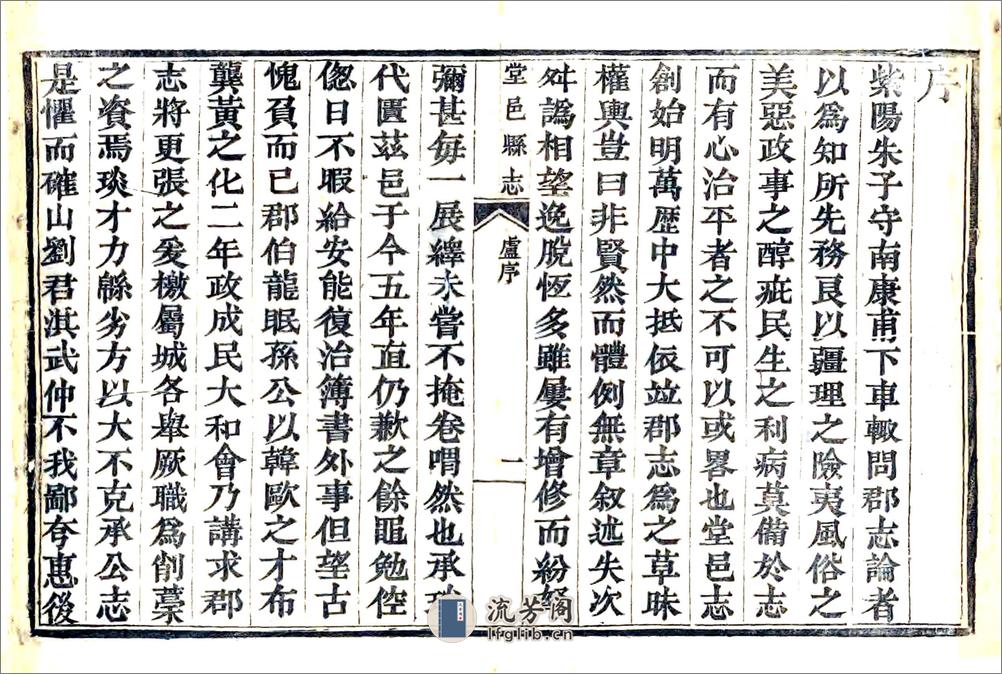 序
紫陽朱子守南康甫下車輙問郡志論者
以爲知所先務良以疆理之險夷風俗之
美惡政事之醇疵民生之利病莫備於志
而有心治平者之不可以或畧也堂邑志
創始明萬歷中大抵依竝郡志爲之草昧
權輿豈曰非賢然而體例無章叙述失次
舛譌相望逸脫恆多雖屢有增修而紛
堂邑縣志 盧序 一
彌甚每一展繹未嘗不掩卷喟然也承
代匱茲邑于今五年直仍歉之餘黽勉倥
偬日不暇給安能復治簿書外事但望古
愧負而已郡伯龍眠孫公以韓歐之才布
龔黃之化二年政成民大和會乃講求郡
志將更張之爰檄屬城各舉厥職爲削藁
之資焉琰才力緜劣方以大不克承公志
是懼而確山劉君淇武仲不我鄙夸惠後
流芳阁
lfglib.cn